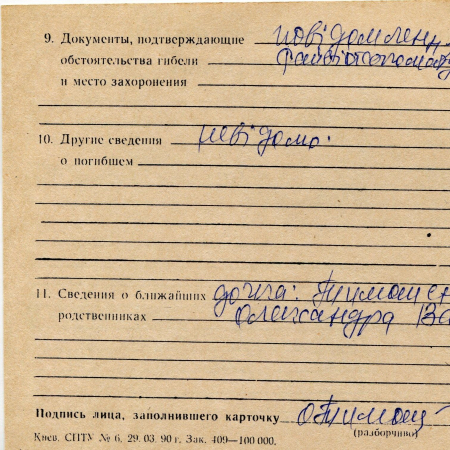 9. Документы, подтверждающие повідомленн
обстоятельства гибели
и место захоронения
10. Другие сведения невідомо.
о погибшем
11. Сведения о ближайших дочка: Тимошен
родственниках Олександра Ва
Подпись лица, заполнившего карточку ОТимош
(разборчиво)
Киев. СПТУ № 6. 29. 03. 90 г. Зак. 409—100 000.